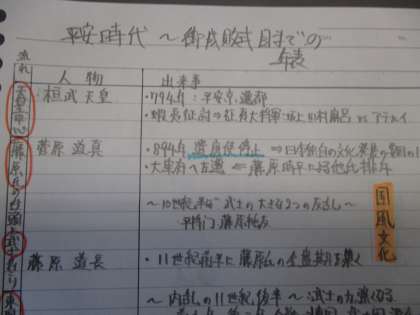 平安時代 〜御成敗式目までの
年表
流れ
人物
出来事
天皇中心
桓武天皇
・794年:平安京遷都
・蝦夷征討⇒征夷大将軍:坂上田村麻呂 vs アテルイ
藤原氏の台頭
菅原道真
・894年 遣唐使停止 ⇒ 日本独自の文化発展の
・大宰府へ左遷 ⇐ 藤原時平による他氏排斥
〜10世紀半ば 武士の大きな2つの反乱〜
平将門、藤原純友
国風文化
武士
藤原道長
・11世紀前半に藤原氏の全盛期を築く
〜内乱の11世紀後半 〜武士の力